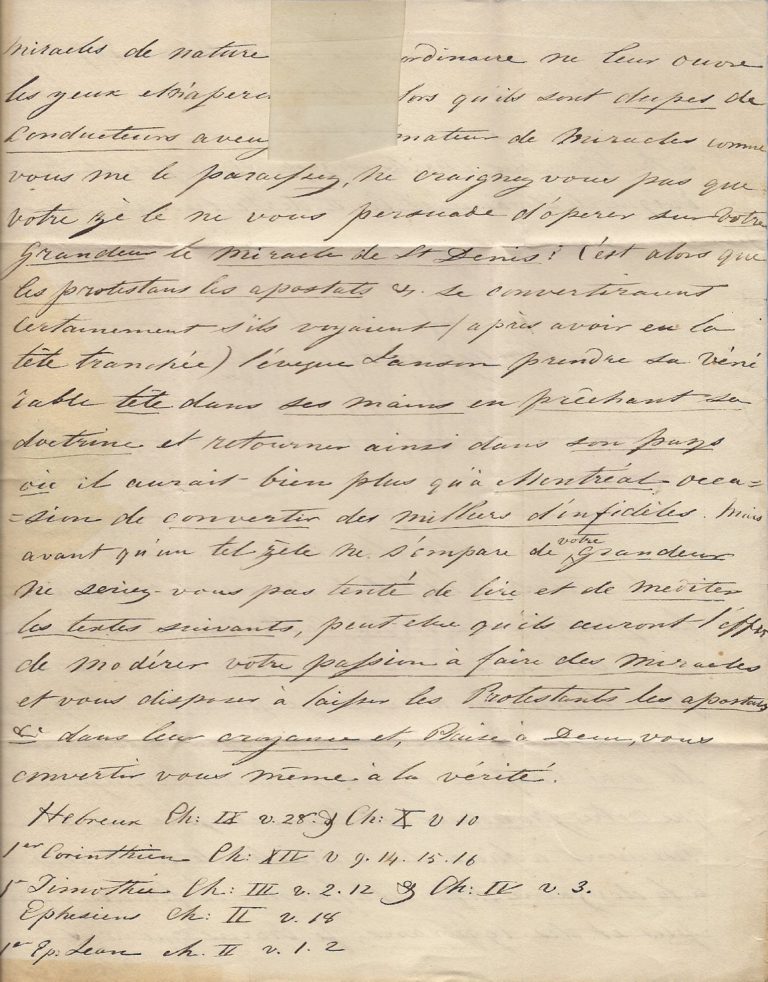 miracles de nature ordinaire ne leur ouvre
les yeux et lors qu'ils sont dupes de
Conducteurs aveu mateur de Miracles comme
vous me le paraissez, ne craignez vous pas que
votre zèle ne vous persuade d'opérer sur Votre
Grandeur le Miracle de St Denis! C'est alors que
les protestans les apostats &. se convertiraient
Certainement s'ils voyaient (après avoir eu la
tête tranchée) l'évêque prendre sa véné
rable tête dans ses mains en prêchant sa
doctrine et retourner ainsi dans son pays
où il aurait bien plus qu'à Montréal occa=
=sion de convertir des milliers d'infidèles. Mais
avant qu'un tel zèle ne s'empare de votre grandeur
ne seriez-vous pas tenté de lire et de mediter
les textes suivants, peut être qu'ils auront l'effet
de modérer votre passion à faire des miracles
et vous disposer à laisser les Protestants les apostats
&c dans leur croyance et, Plaise à Dieu, vous
convertir vous même à la vérité.
Hébreux Ch: IX v. 28. & Ch: X v 10
1er Corinthien Ch: XII v 9. 14. 15. 16
1er Timothée Ch: III v. 2. 12 & Ch: IV v. 3.
Ephesiens Ch: II v. 18
1er Ep: Jean ch. II v. 1. 2